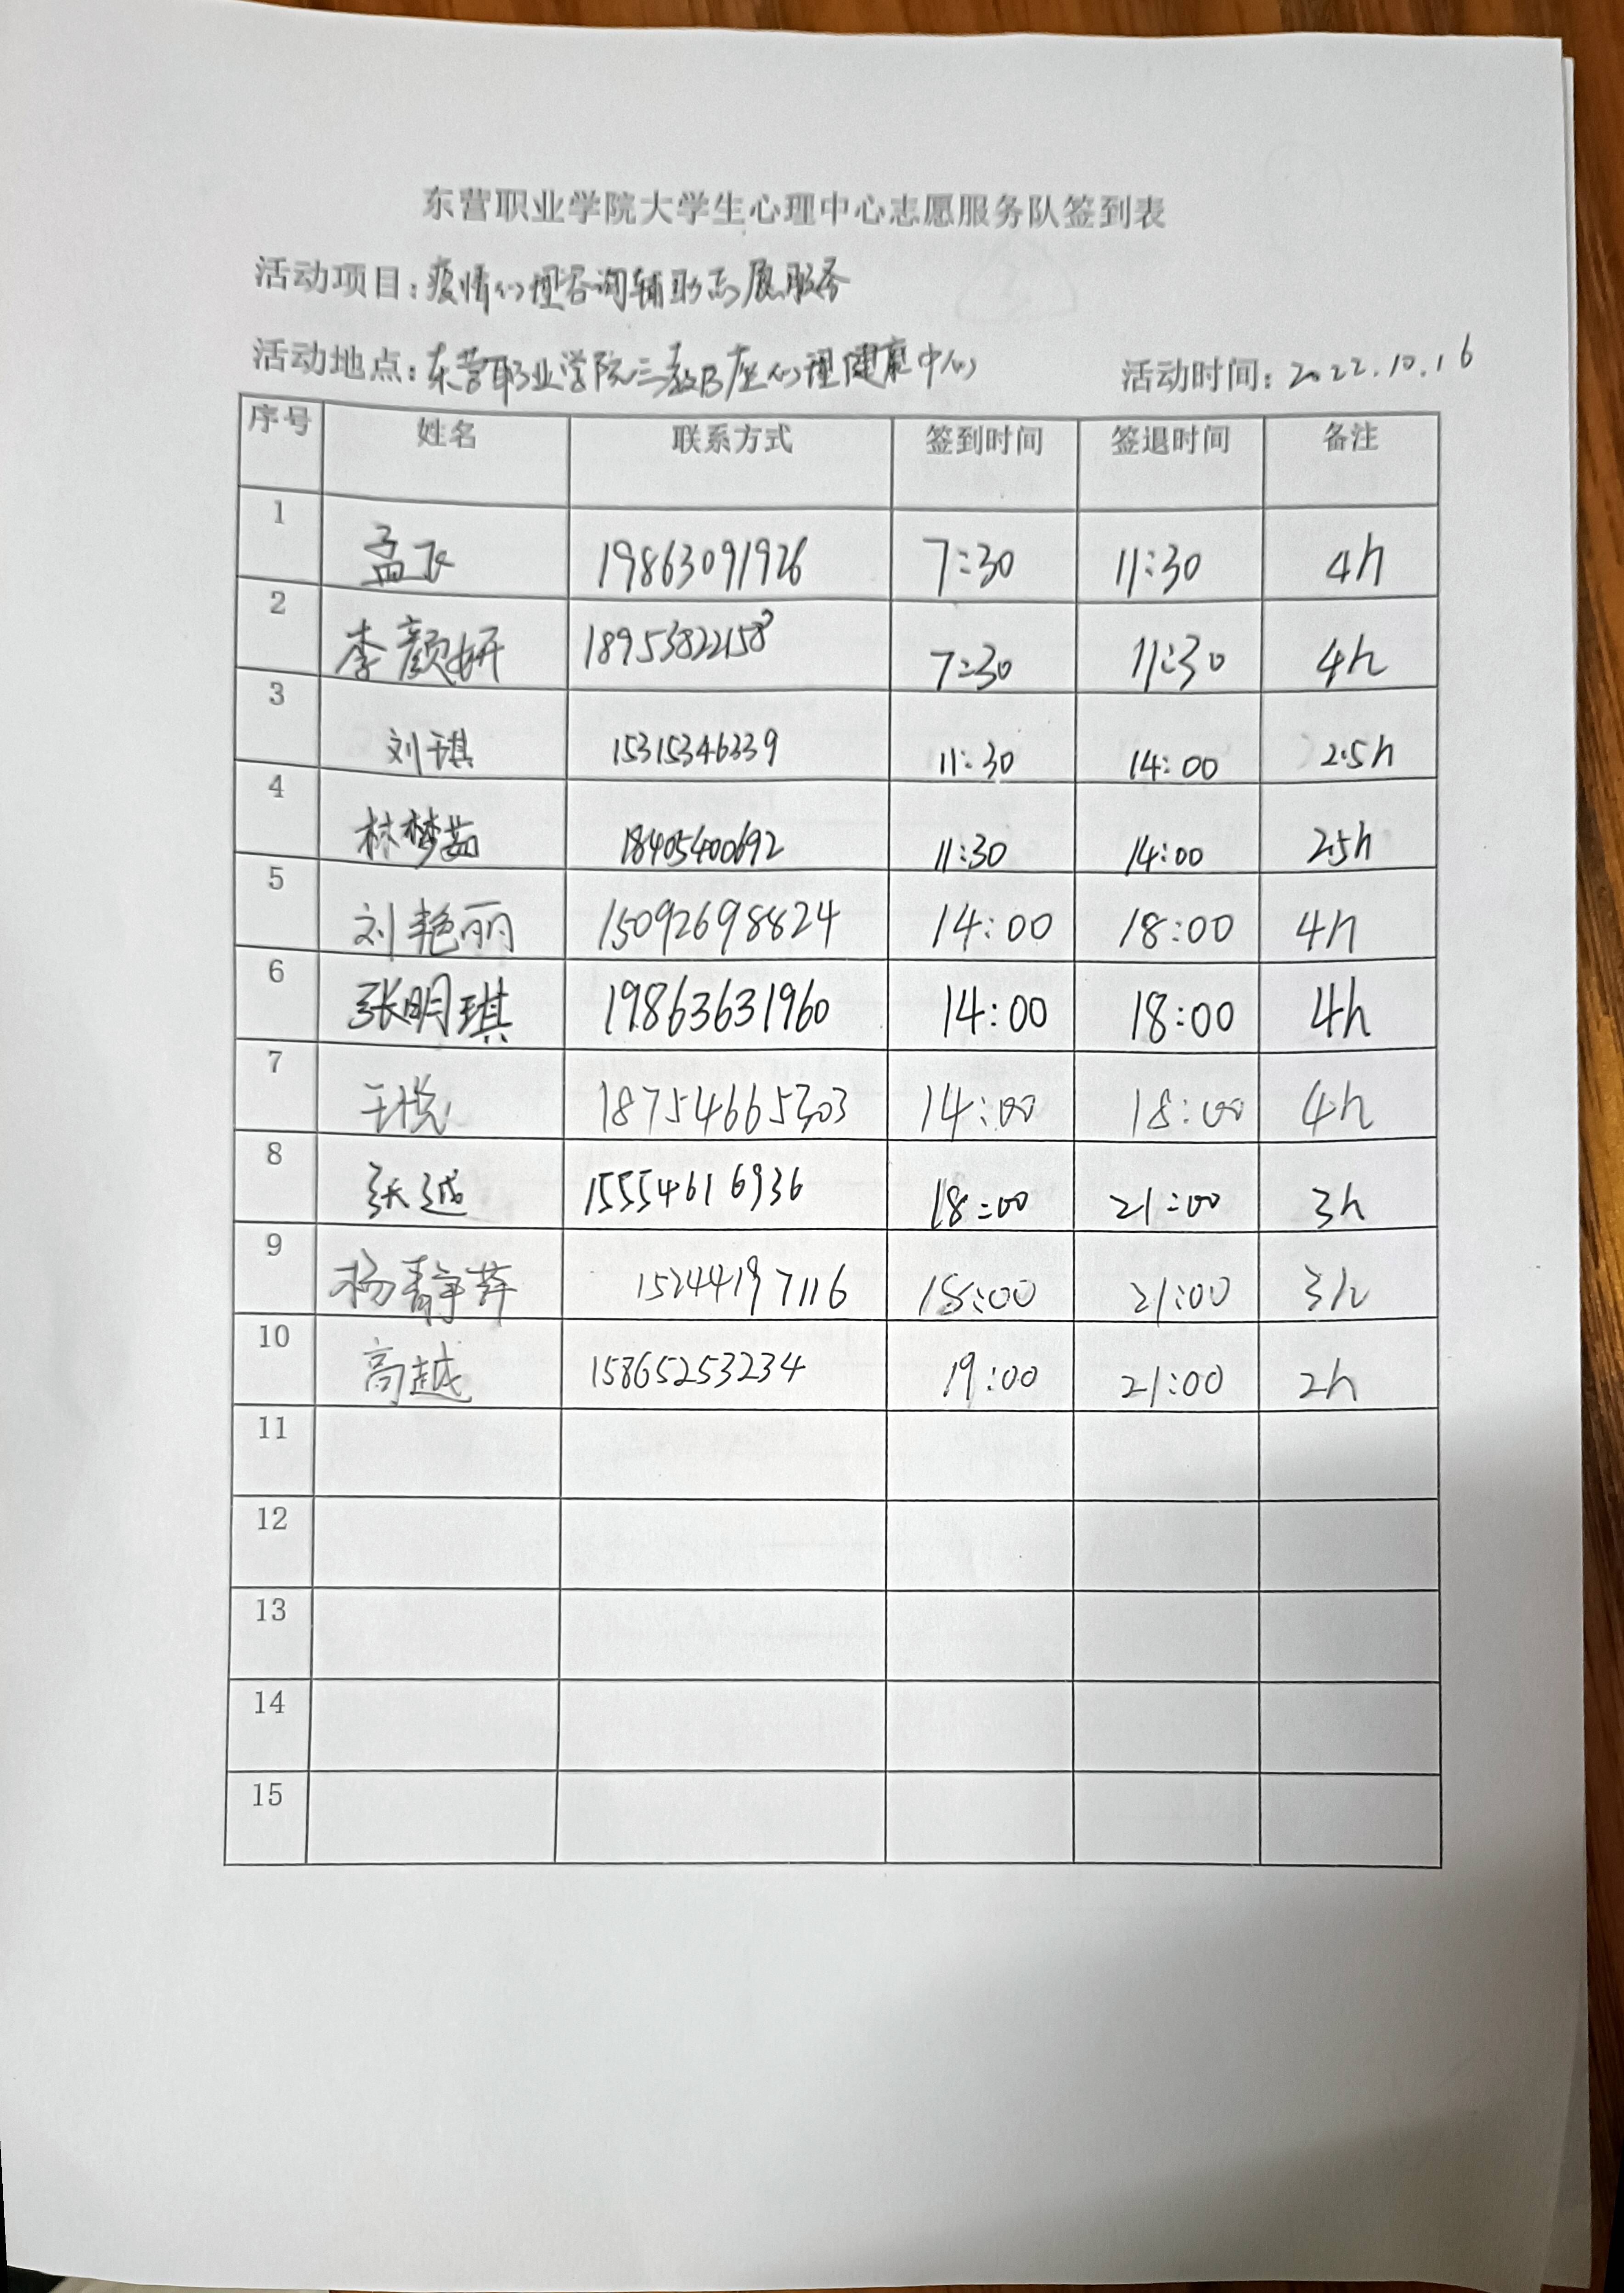 东营职业学院大学生心理中心志愿服务队签到表
活动项目：疫情心理咨询辅助志愿服务
活动地点：东营职业学院三教B座心理健康中心 活动时间：2022.10.16
序号 姓名 联系方式 签到时间 签退时间 备注
1 孟飞 19863091926 7:30 11:30 4h
2 李颜妍 18953822158 7:30 11:30 4h
3 刘琪 15315346339 11:30 14:00 2.5h
4 林梦茹 18405400692 11:30 14:00 2.5h
5 刘艳丽 15092698824 14:00 18:00 4h
6 张明琪 19863631960 14:00 18:00 4h
7 王悦 18754665303 14:00 18:00 4h
8 张越 15554616936 18:00 21:00 3h
9 杨静萍 15244197116 18:00 21:00 3h
10 高越 15865253234 19:00 21:00 2h
11
12
13
14
15